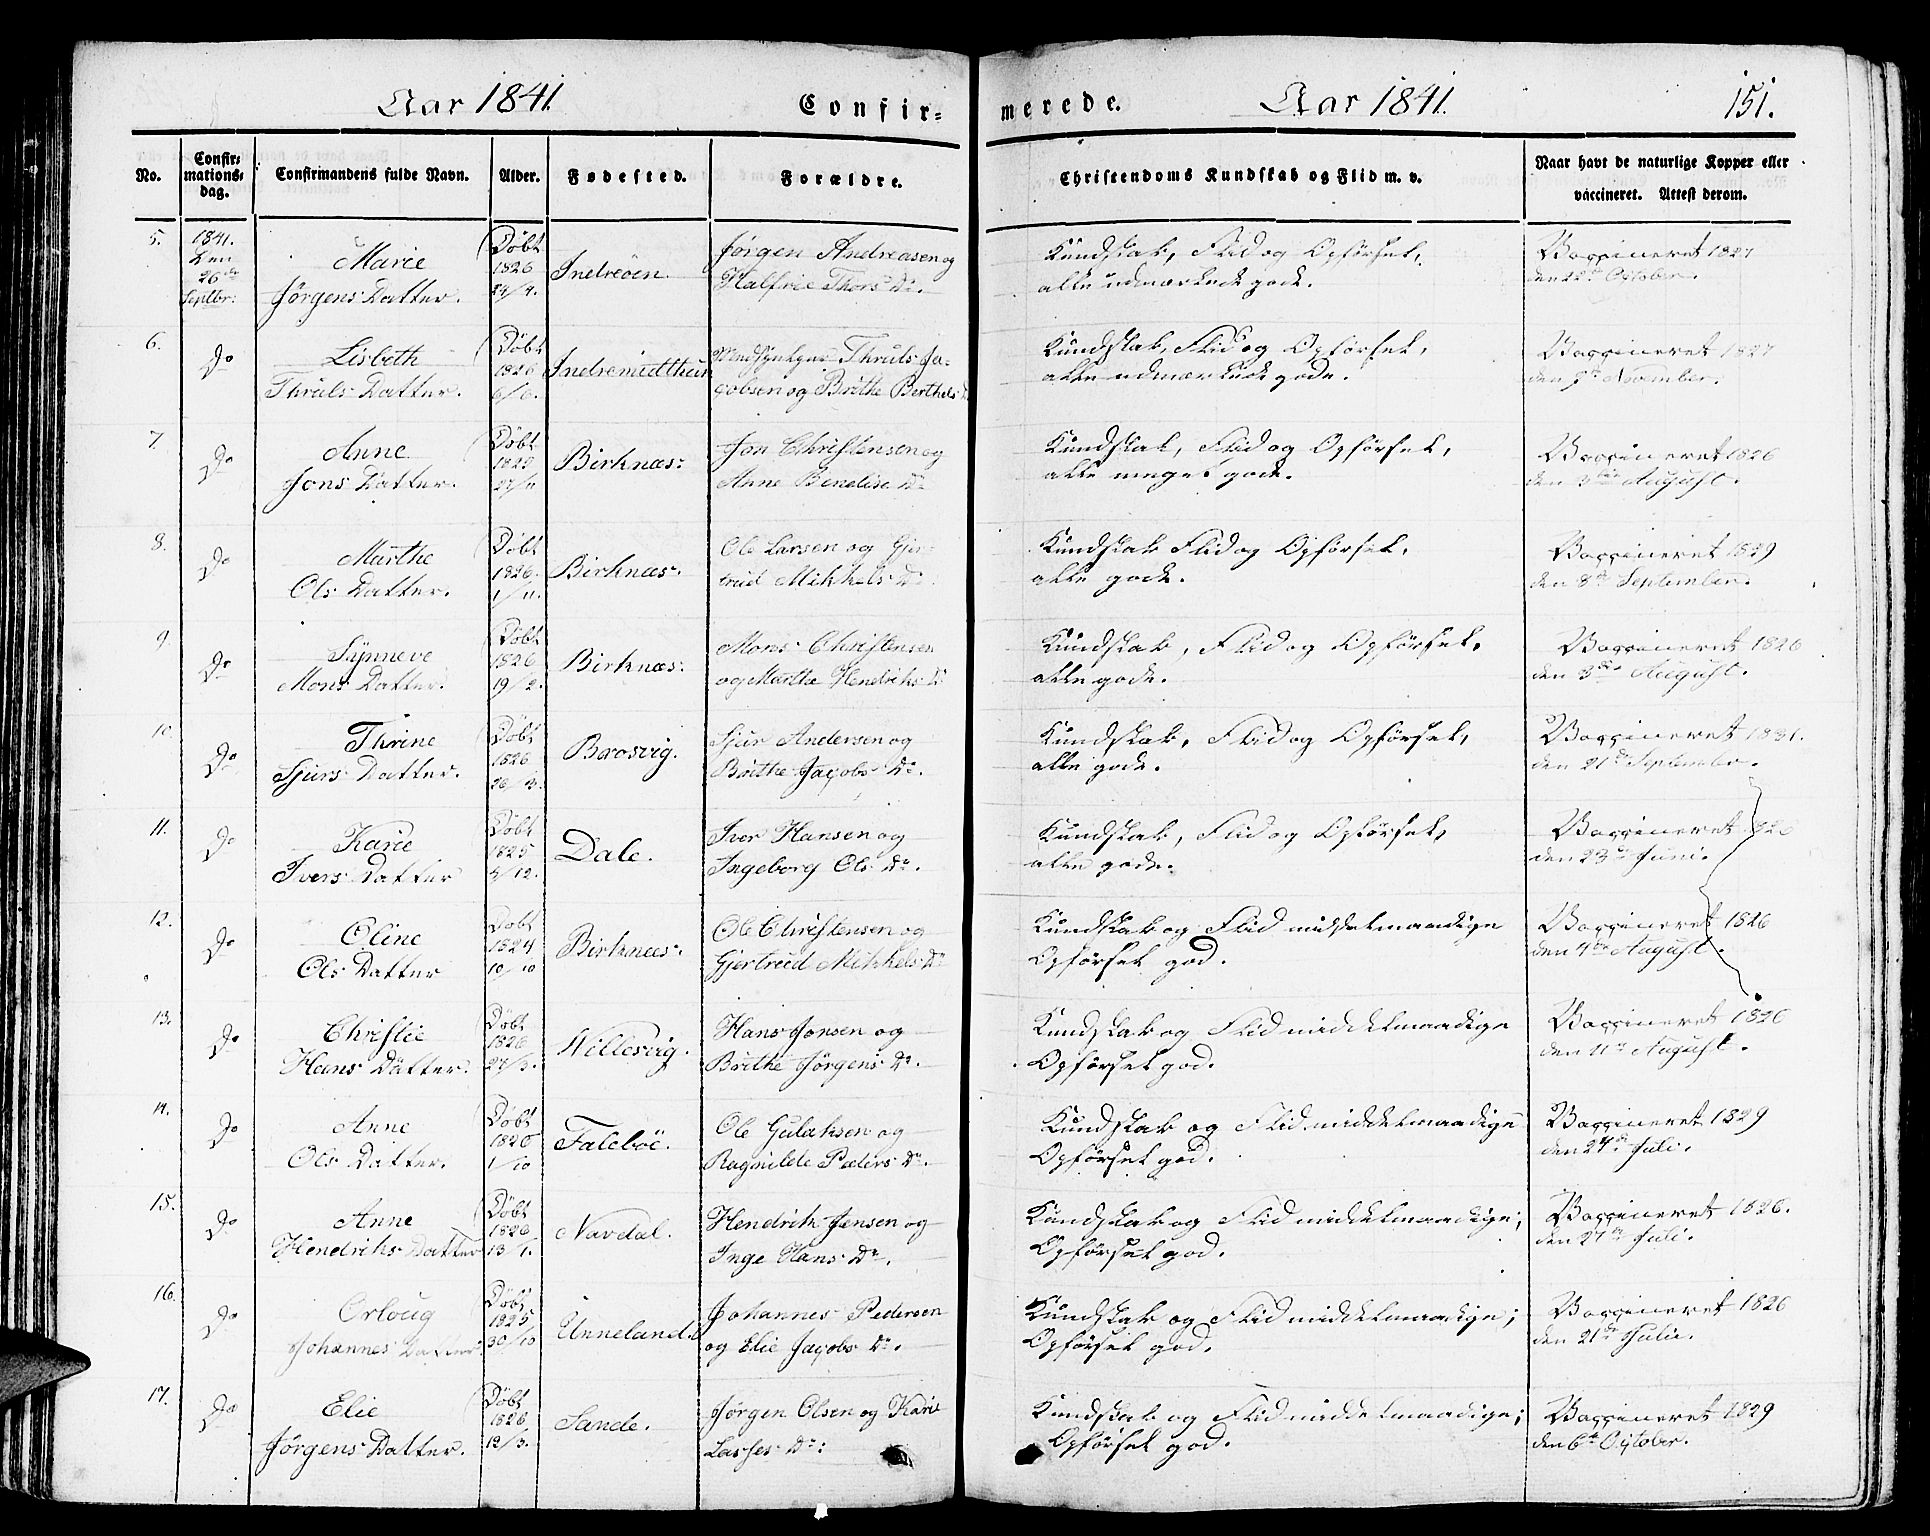 Aar 1841. Confir= merede. Aar 1841. 151.
No. Confirmationsdag. Confirmandens fulde Navn. Alder. Fødested. Forældre. Christendoms Kundskab og Flid m. v. Naar havt de naturlige Kopper eller vaccineret. Attest derom.
5. 1841. Døbt Jørgen Andreasen og Kundskab, Flid og Opførsel, Vaccineret 1827
den Marie 1826 Indreöen. Halfrie Thors Dr. alle udmærkede gode. den 22de October.
26de Jørgens Datter. 24/4.
Septbr:
6. Do Lisbeth Døbt Indremidthun Thruls Ja- Kundskab, Flid og Opførsel, Vaccineret 1827
Thruls Datter. 1826 6/6. cobsen og Brithe Berthels D alle udmærkede gode. den November.
7. Do Anne Døbt Birknæs: Jon Christensen og Kundskab, Flid og Opførsel, Vaccineret 1826
Jons Datter. 27/11 Anne Bendise Dr alle meget gode. den 3die August.
8. Do Marthe Døbt Birknæs. Ole Larsen og Gjer- Kundskab Flid og Opførsel, Vaccineret 1829
Ols Datter. 1826. 1/11. trud Mikkels Dr alle gode. den 8de September.
9. Do Synneve Døbt Birknæs: Mons Christensen Kundskab, Flid og Opførsel, Vaccineret 1826
Mons Datter. 1826 19/2. og Marthe Hendriks Dr alle gode. den 3die August.
10. Do Thrine Døbt Brosvig. Sjur Andersen og Kundskab, Flid og Opførsel, Vaccineret 1831.
Sjurs Datter. 1826 26/3. Brithe Jacobs Dr. alle gode. den 21de Septembr.
11. Do Karie Døbt Dale. Iver Hansen og Kundskab, Flid og Opførsel, Vaccineret
Ivers Datter 1825 4/12. Ingeborg Ols Dr. alle gode. den 23de Juni.
12. Do Oline Døbt Birknæs. Ole Christensen og Kundskab og Flid middelmaadige Vaccineret 1826
Ols Datter 1824 10/10 Gjertrud Mikkels Dr Opførsel god. den 4de August.
13. Do Christie Døbt Willesvig. Hans Jonsen og Kundskab og Flid middelmaadige Vaccineret 1826
Hans Datter. 1826 27/3. Brithe Jørgens Dr. Opførsel god. den 11te August.
14. Do Anne Døbt Faleböe. Ole Gulaksen og Kundskab og Flid middelmaadige Vaccineret 1829
Ols Datter. 1/10 Ragnilde Peders Dr. Opførsel god. den 24de Juli.
15. Do Anne Døbt Navdal. Hendrik Jensen og Kundskab og Flid middelmaadige; Vaccineret 1826.
Hendriks Datter 1826 13/1. Inge Hans Dr. Opførsel god. den 27de Juli.
16. Do Orloug Døbt Unneland. Johannes Pedersen Kundskab og Flid middelmaadige; Vaccineret 1826
Johannes Datter. 1825 30/10 og Elie Jacobs Dr. Opførsel god. den 21de Julie.
17. Do Elie Døbt Sande. Jørgen Olsen og Kari Kundskab og Flid middelmaadige; Vaccineret 1829
Jørgens Datter. 1826 12/3. Lasses Dr: Opførsel god. den 6te October.